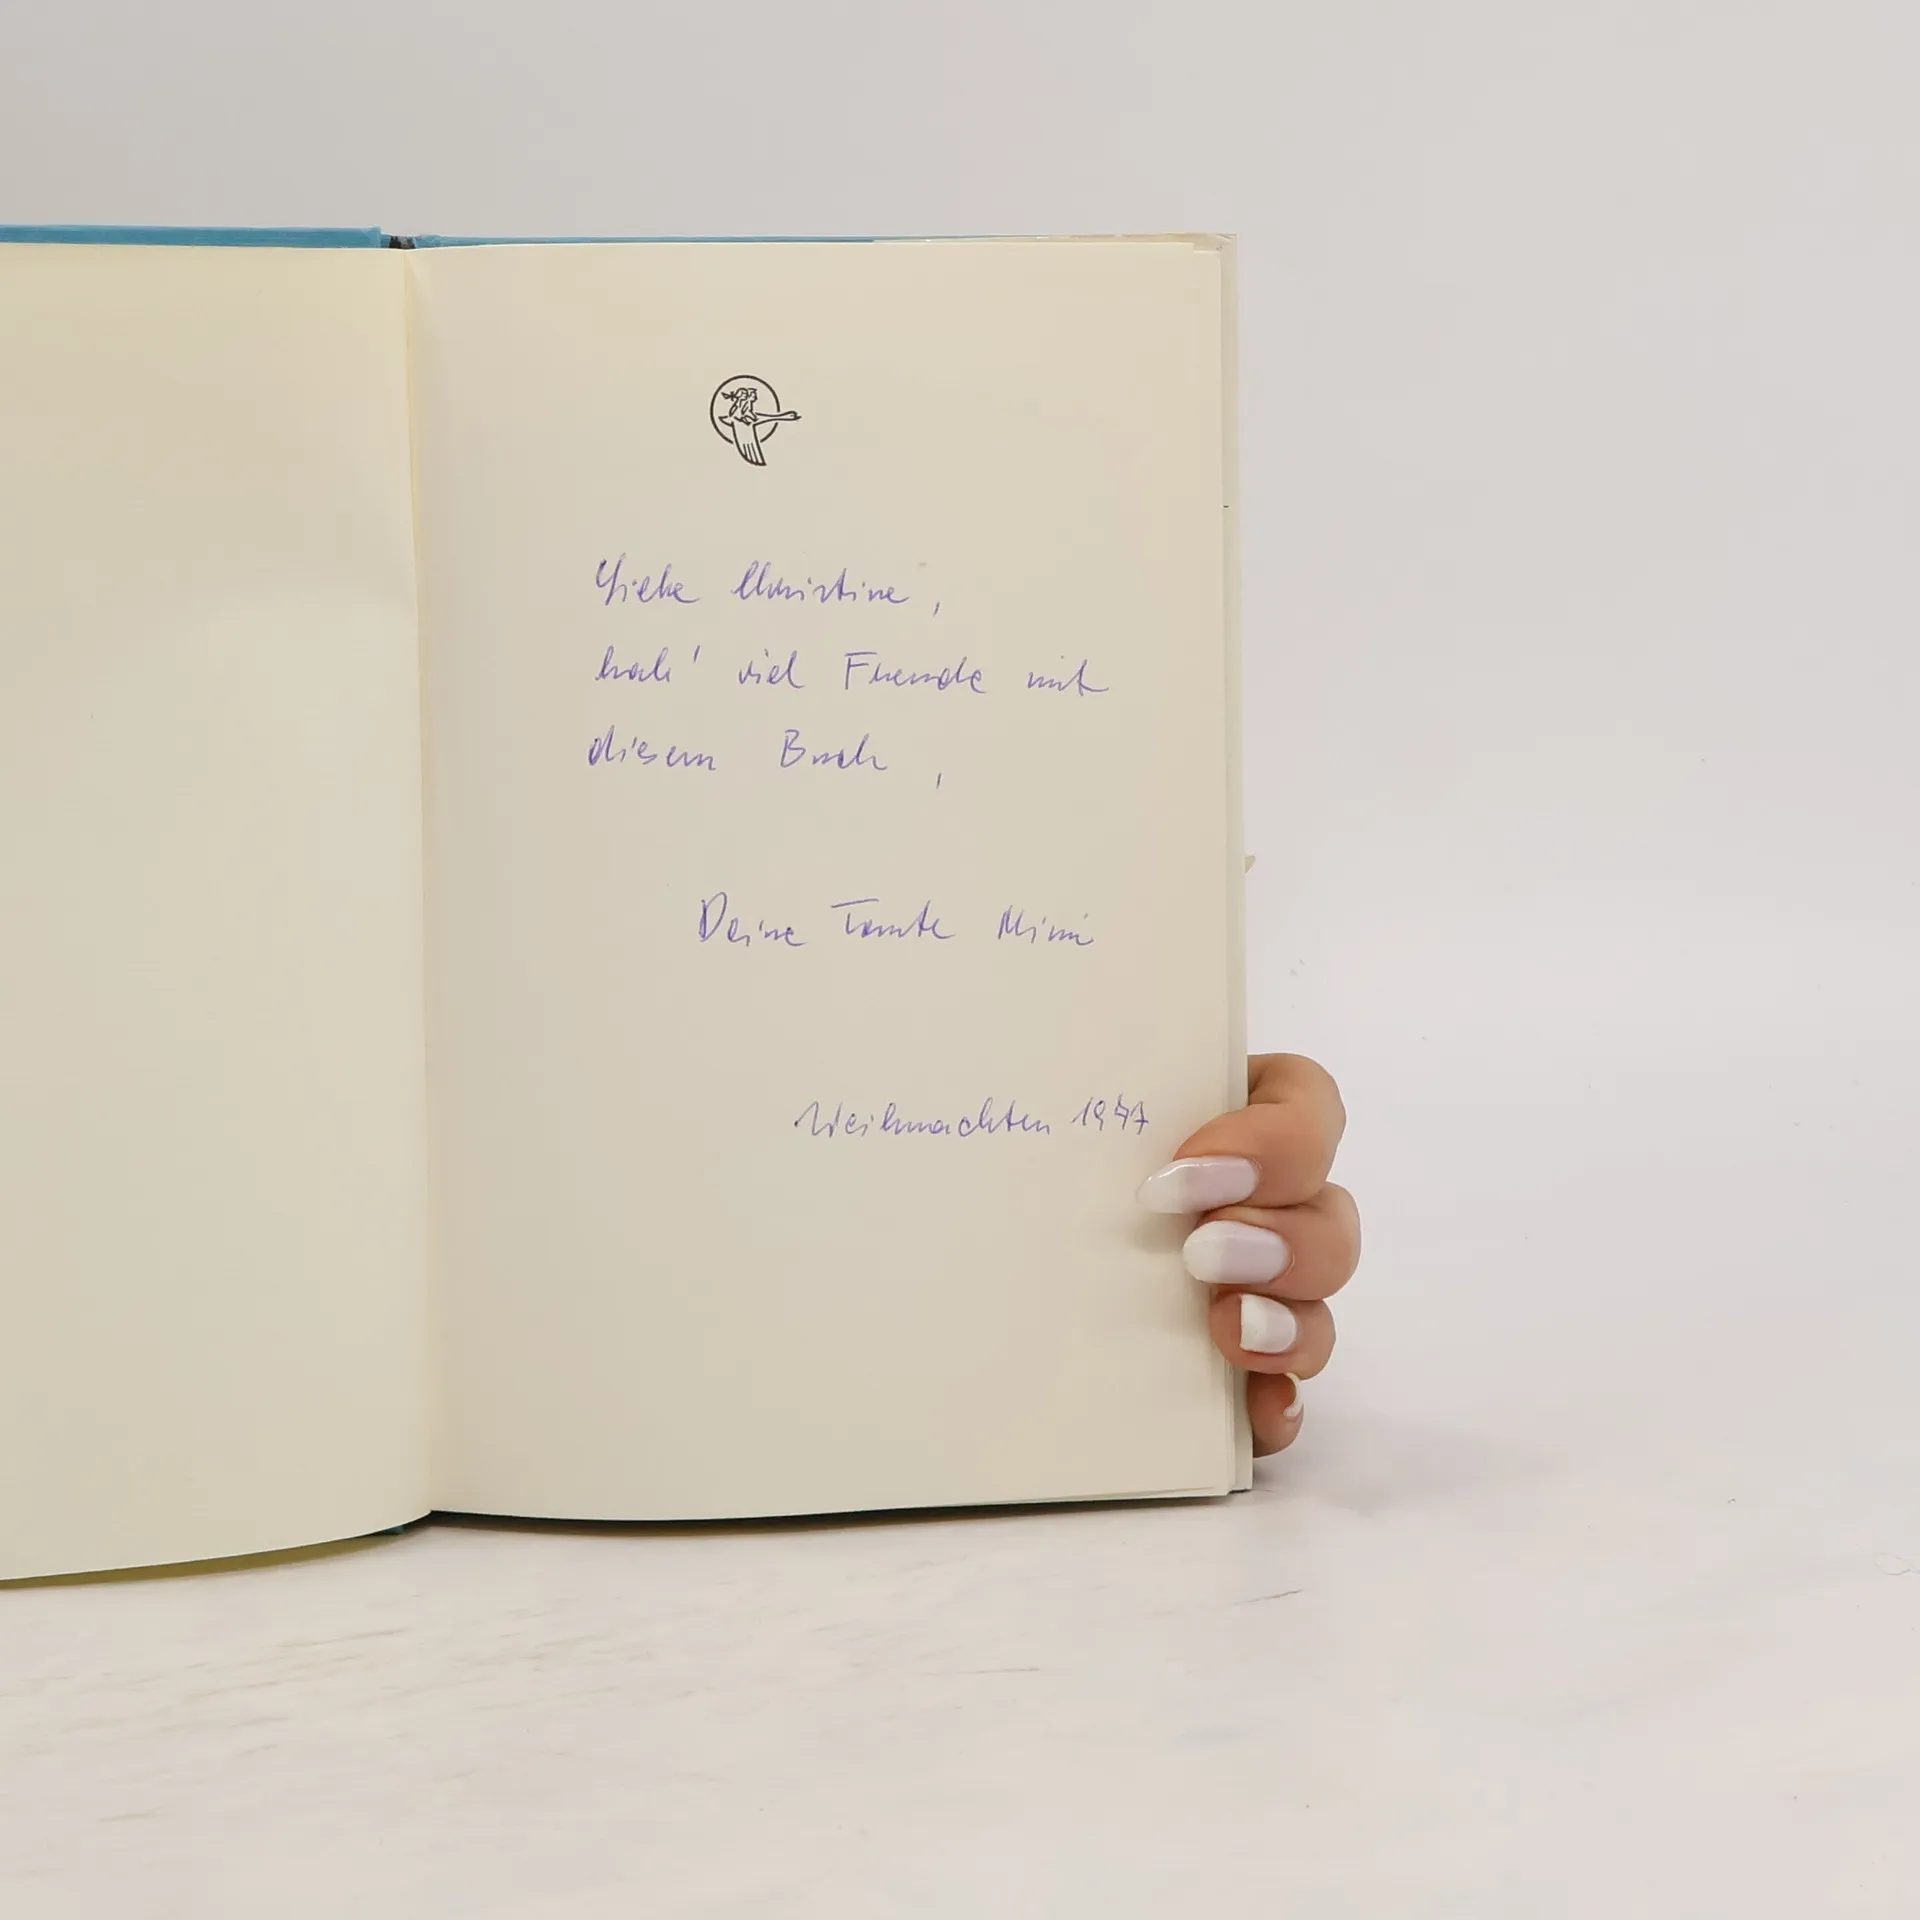 Liebe Christine,
hab' viel Freude mit
diesem Buch,
Deine Tante Mimi
Weihnachten 1977